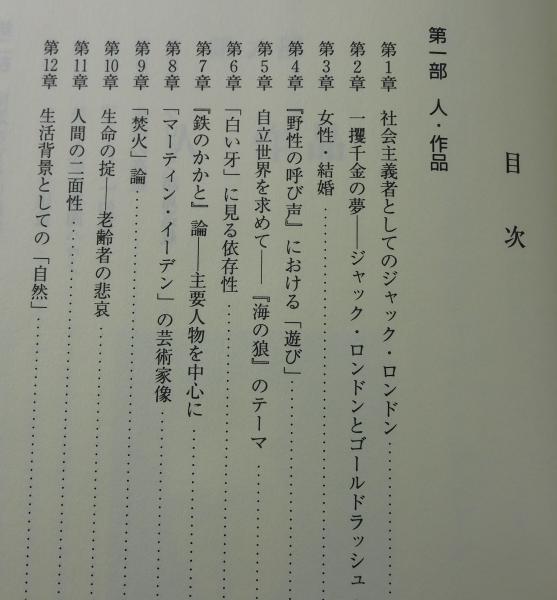 目次
第一部 人・作品
第1章 社会主義者としてのジャック・ロンドン
第2章 一攫千金の夢――ジャック・ロンドンとゴールドラッシュ
第3章 女性・結婚
第4章 『野性の呼び声』における「遊び」
第5章 自立世界を求めて――『海の狼』のテーマ
第6章 「白い牙」に見る依存性
第7章 『鉄のかかと』論――主要人物を中心に
第8章 「マーティン・イーデン」の芸術家像
第9章 「焚火」論
第10章 生命の掟――老齢者の悲哀
第11章 人間の二面性
第12章 生活背景としての「自然」